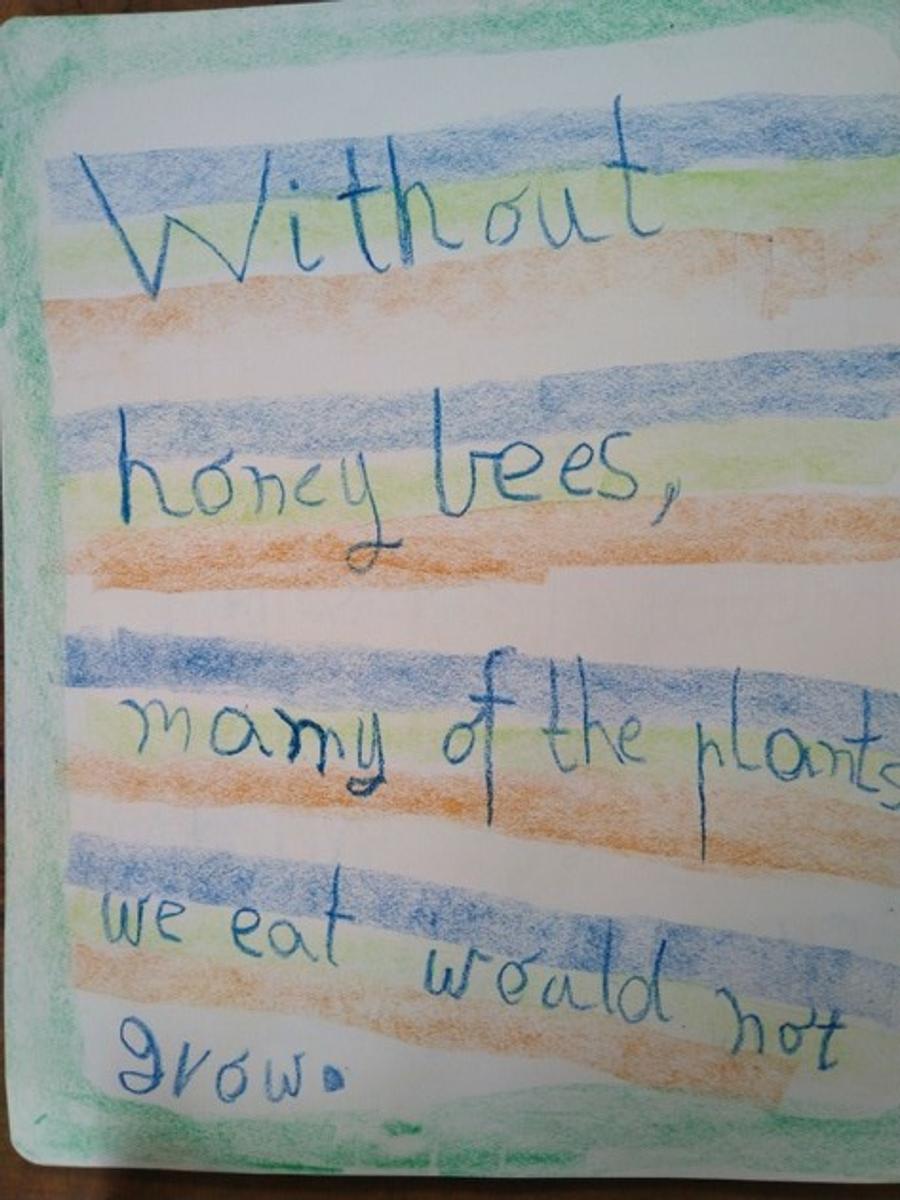 Without
honey bees,
many of the plants
we eat would not
grow.